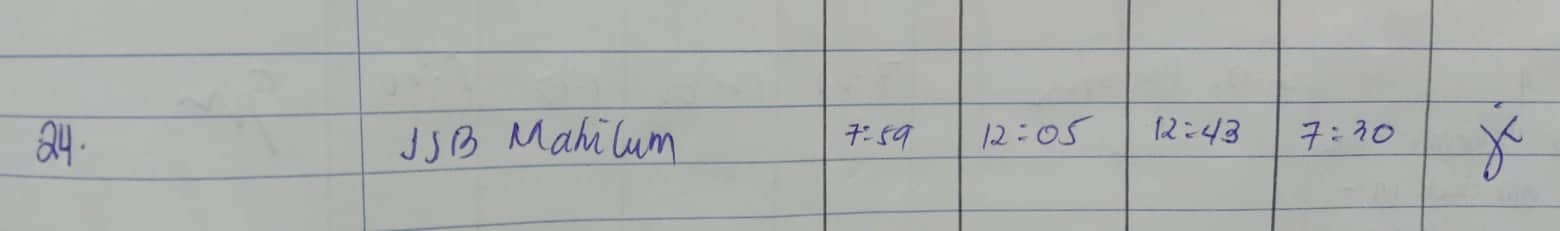 24. JSB Mahilum 7:59 12:05 12:43 7:30